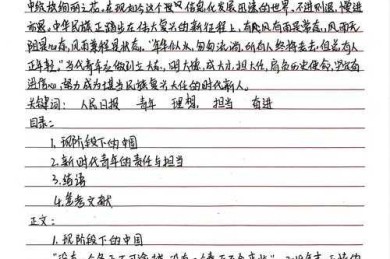 中绽放绚丽之花。在现如今这个被信息化发展迅速的世界,不进则退,慢进
亦退。中华民族正踏步在伟大复兴的新征程上,有风有雨是常态,风雨无
阻是心态,风雨兼程是状态。"年轻似火,匆匆流淌,所有人终将老去,但总有人
正年轻。"当代青年应做到立大志,明大德,成大才,担大任,肩负历史使命,坚定前
进信心,努力成为堪当民族复兴大任的时代新人。
关键词: 人民日报 青年 理想, 担当 奋进
目录:
1. 现阶段下的中国
2. 新时代青年的责任与担当
3. 结语
4. 参考文献
正文:
1. 现阶段下的中国